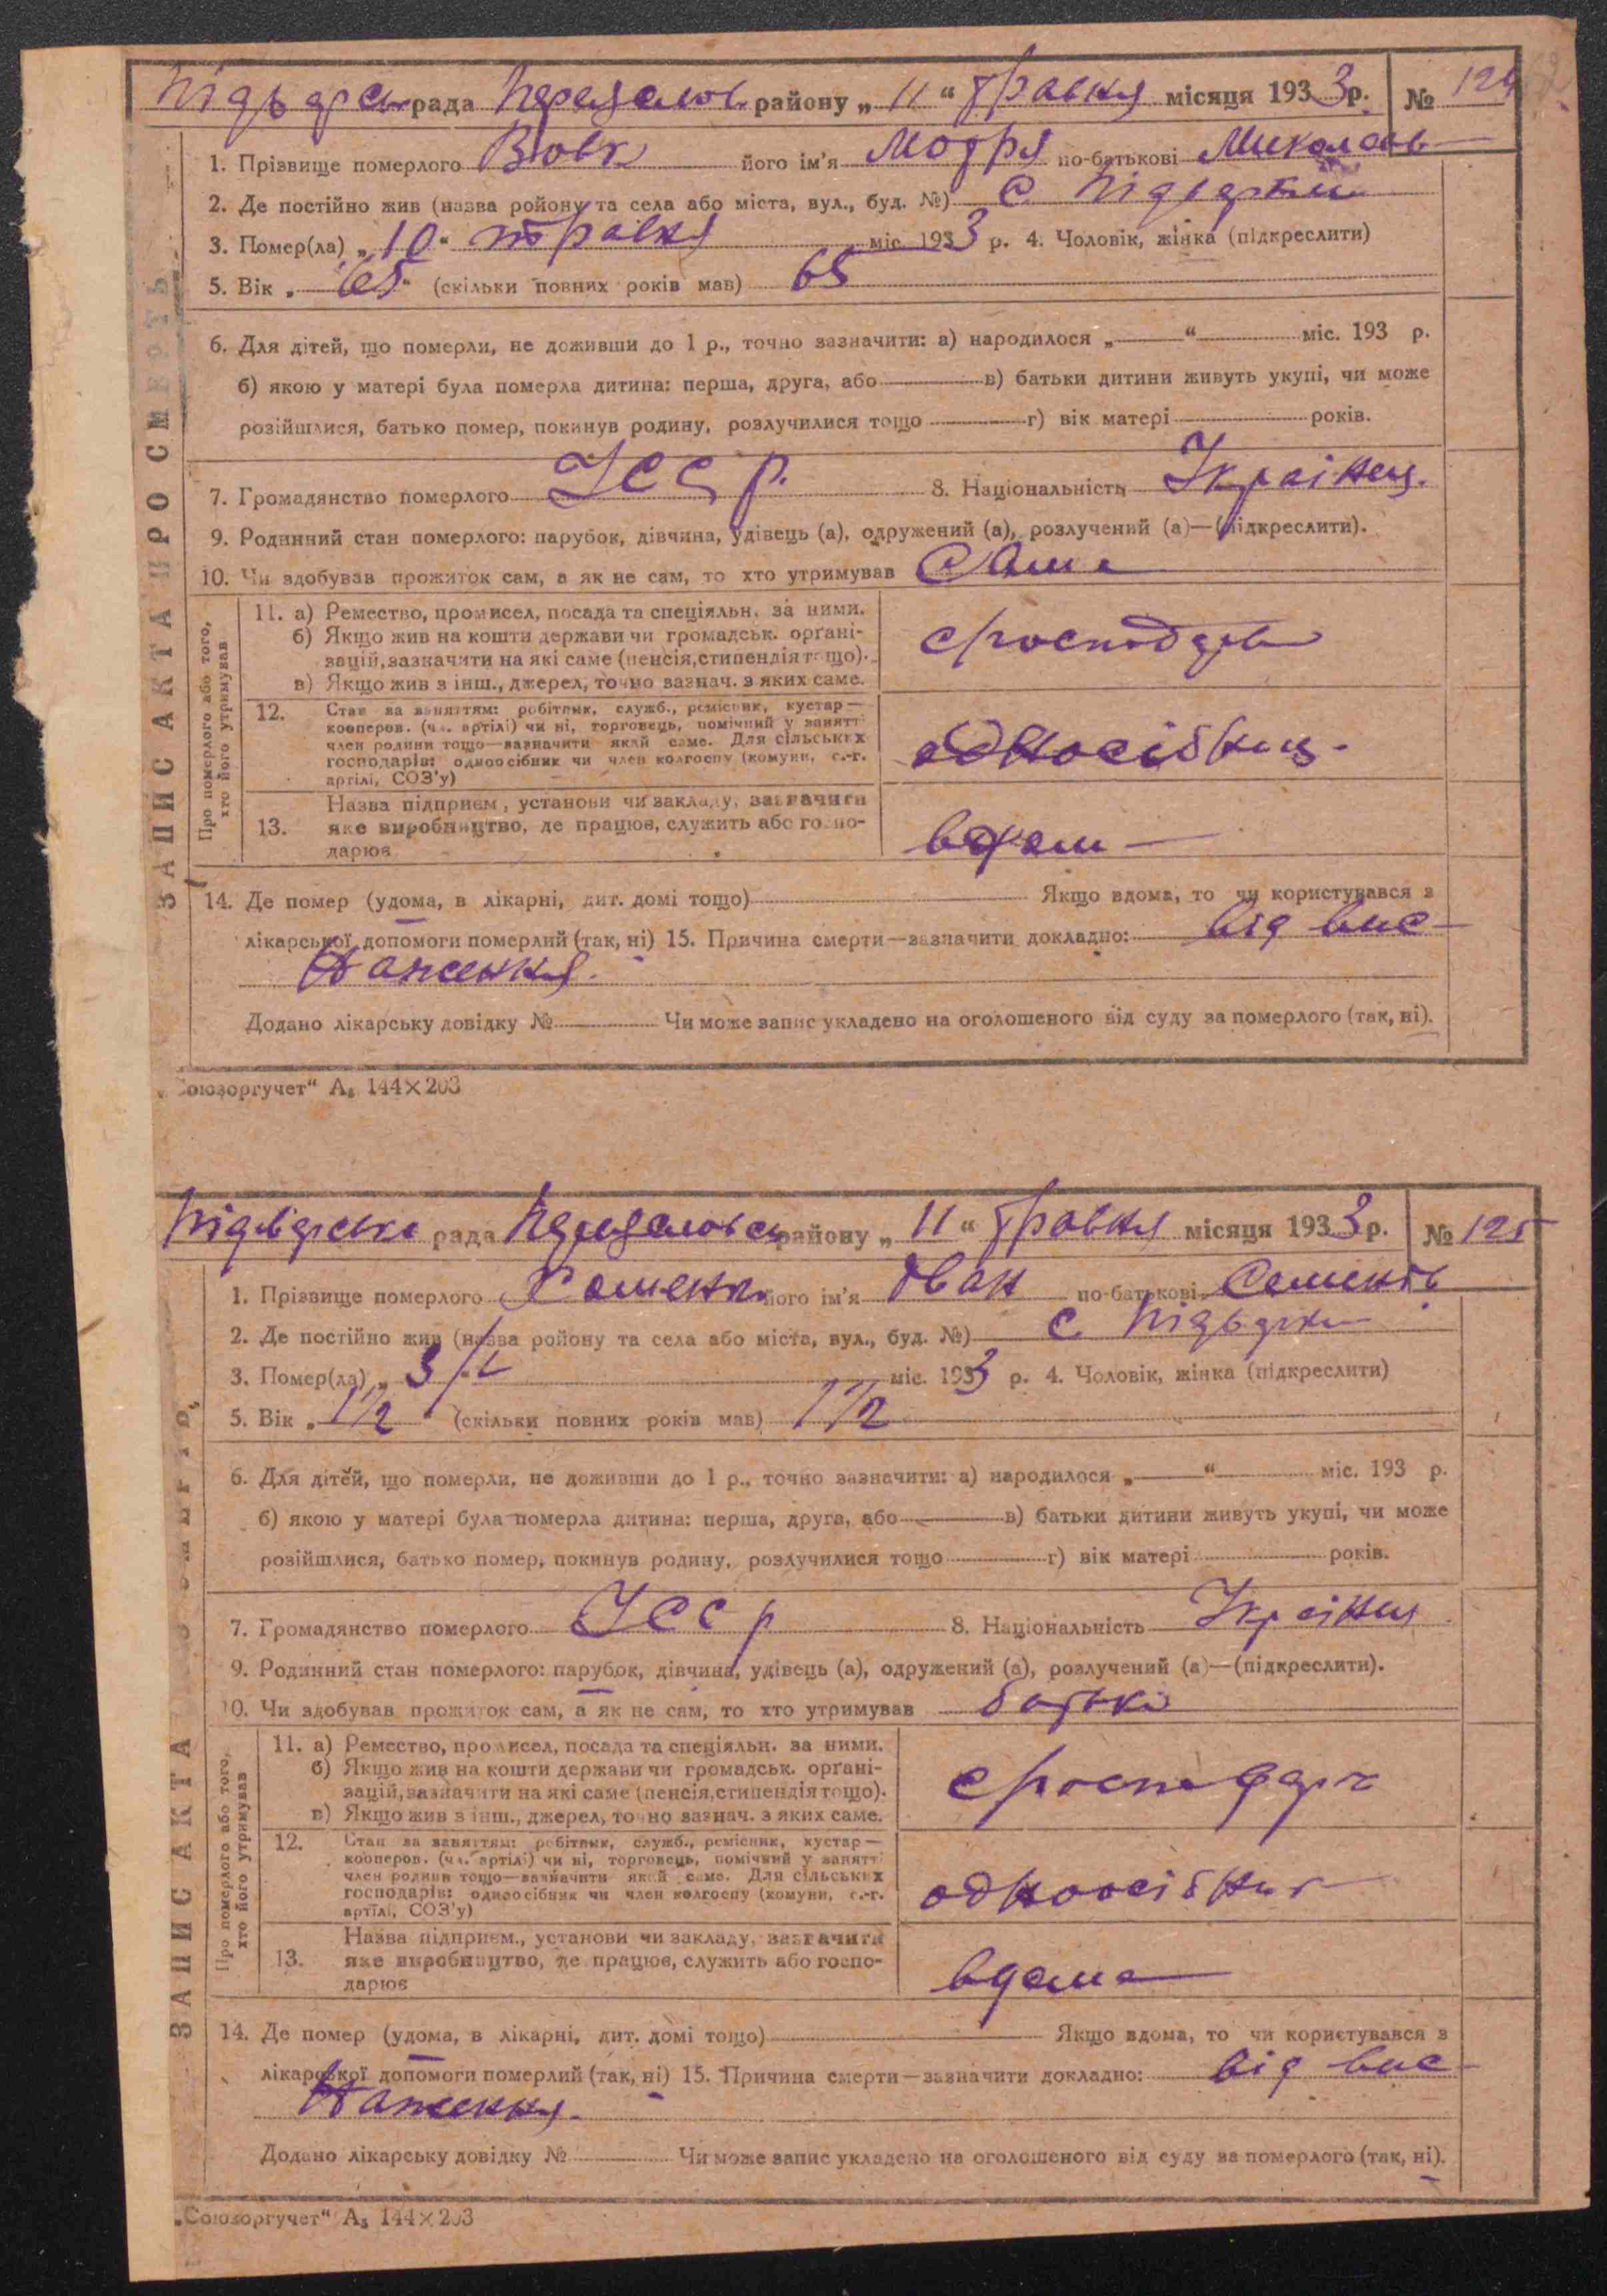 Підварсь рада Переяслов району „ 11 “ травня місяця 1933 р. № 124
1. Прізвище померлого Вовк його ім'я Мотря по-батькові Миколаєв
2. Де постійно жив (назва ройону та села або міста, вул., буд. №) с Підварки
3. Помер(ла) „ 10 “ травня міс. 1933 р. 4. Чоловік, жінка (підкреслити)
5. Вік „ 65 “ (скільки повних років мав) 65
6. Для дітей, що померли, не доживши до 1 р., точно зазначити: а) народилося „ “ міс. 193 р.
б) якою у матері була померла дитина: перша, друга, або в) батьки дитини живуть укупі, чи може
розійшлися, батько помер, покинув родину, розлучилися тощо г) вік матері років.
7. Громадянство померлого УССР. 8. Національність Українц.
9. Родинний стан померлого: парубок, дівчина, удівець (а), одружений (а), розлучений (а)—(підкреслити).
10. Чи здобував прожиток сам, а як не сам, то хто утримував Сама
ЗАПИС АКТА ПРО СМЕРТЬ
Про померлого або того,
хто його утримував
11. а) Ремество, промисел, посада та спеціяльн. за ними.
б) Якщо жив на кошти держави чи громадськ. орґані-
зацій, зазначити на які саме (пенсія, стипендія тощо).
в) Якщо жив з інш., джерел, точно зазнач. з яких саме.
12. Стан за заняттям: робітник, служб., ремісник, кустар —
кооперов. (чл. артілі) чи ні, торговець, помічний у занятті
член родини тощо—зазначити який саме. Для сільських
господарів: одноосібник чи член колгоспу (комуни, с.-г.
артілі, СОЗ'у)
односібниц.
13. Назва підприєм., установи чи закладу, зазначити
яке виробництво, де працює, служить або госпо-
дарює
14. Де помер (удома, в лікарні, дит. домі тощо) Якщо вдома, то чи користувався з
лікарської допомоги померлий (так, ні) 15. Причина смерти—зазначити докладно: від вис
наження.
Додано лікарську довідку № Чи може запис укладено на оголошеного від суду за померлого (так, ні).
„Союзоргучет“ А₅ 144×203
Підварська рада Переяславськ району „ 11 “ травня місяця 1933 р. № 125
1. Прізвище померлого його ім'я Іван по-батькові Семенов
2. Де постійно жив (назва ройону та села або міста, вул., буд. №) с. Підварки
3. Помер(ла) „ 3/V міс. 1933 р. 4. Чоловік, жінка (підкреслити)
5. Вік „ 1 1/2 “ (скільки повних років мав) 1 1/2
6. Для дітей, що померли, не доживши до 1 р., точно зазначити: а) народилося „ “ міс. 193 р.
б) якою у матері була померла дитина: перша, друга, або в) батьки дитини живуть укупі, чи може
розійшлися, батько помер, покинув родину, розлучилися тощо г) вік матері років.
7. Громадянство померлого УССР 8. Національність Українц
9. Родинний стан померлого: парубок, дівчина, удівець (а), одружений (а), розлучений (а)—(підкреслити).
10. Чи здобував прожиток сам, а як не сам, то хто утримував батько
ЗАПИС АКТА ПРО СМЕРТЬ
Про померлого або того,
хто його утримував
11. а) Ремество, промисел, посада та спеціяльн. за ними.
б) Якщо жив на кошти держави чи громадськ. орґані-
зацій, зазначити на які саме (пенсія, стипендія тощо).
в) Якщо жив з інш., джерел, точно зазнач. з яких саме.
12. Стан за заняттям: робітник, служб., ремісник, кустар —
кооперов. (чл. артілі) чи ні, торговець, помічний у занятті
член родини тощо—зазначити який саме. Для сільських
господарів: одноосібник чи член колгоспу (комуни, с.-г.
артілі, СОЗ'у)
одноосібник
13. Назва підприєм., установи чи закладу, зазначити
яке виробництво, де працює, служить або госпо-
дарює
вдома
14. Де помер (удома, в лікарні, дит. домі тощо) Якщо вдома, то чи користувався з
лікарської допомоги померлий (так, ні) 15. Причина смерти—зазначити докладно: від вис
наження.
Додано лікарську довідку № Чи може запис укладено на оголошеного від суду за померлого (так, ні).
„Союзоргучет“ А₅ 144×203